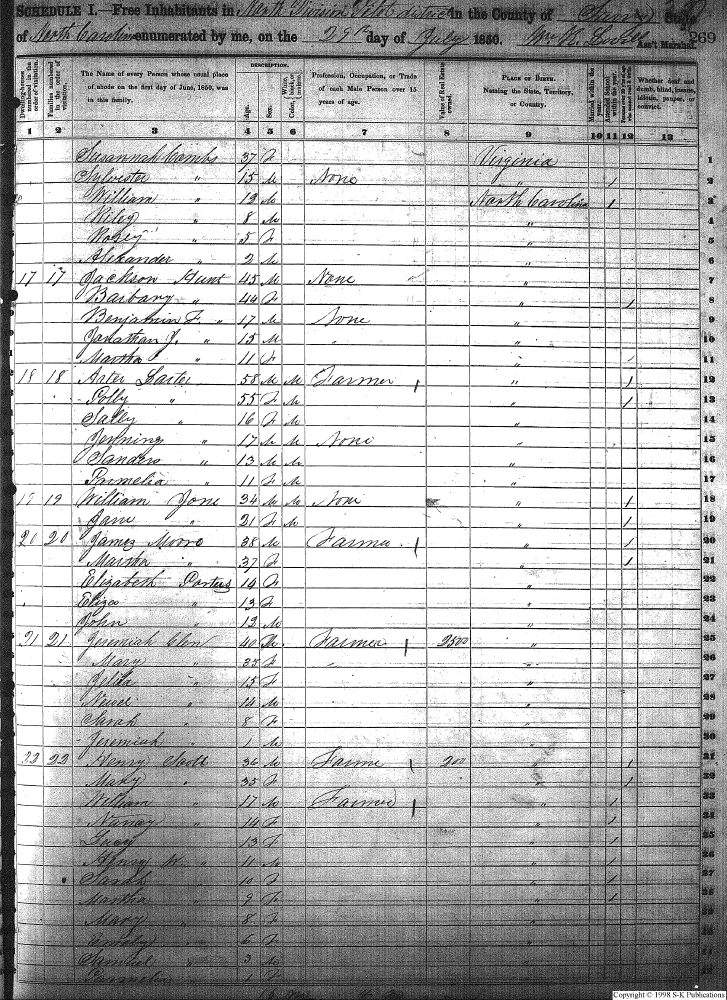 SCHEDULE I.—Free Inhabitants in North Division in the County of Surry State
of North Carolina enumerated by me, on the 29th day of July 1850. Wm H. Ass't Marshal. 269
Dwelling-houses numbered in the order of visitation.
Families numbered in the order of visitation.
The Name of every Person whose usual place of abode on the first day of June, 1850, was in this family.
DESCRIPTION.
Age.
Sex.
White, black, or mulatto.
Color,
Profession, Occupation, or Trade of each Male Person over 15 years of age.
Value of Real Estate owned.
PLACE OF BIRTH.
Naming the State, Territory, or Country.
Married within the year.
Whether deaf and dumb, blind, insane, idiotic, pauper, or convict.
1 2 3 4 5 6 7 8 9 10 11 12 13
Susannah Combs 37 F Virginia 1
Sylvester " 15 M None " 1 2
William " 12 M North Carolina 1 3
Riley " 8 M " 4
Rosey " 5 F " 5
Alexander " 2 M " 6
17 17 Jackson Hunt 45 M None " 7
Barbary " 44 F " 1 8
Benjamin F. " 17 M None " 9
Jonathan J. " 15 M " " 10
Martha " 11 F " 11
18 18 Carter 58 M M Farmer " 1 12
Polly " 55 F M " 1 13
Sally " 16 F M " 14
Jenning " 17 M M None " 15
Sanders " 13 M M " 16
Parmelia " 11 F M " 17
19 19 William Jone 34 M M None " 1 18
Jane " 21 F M " 1 19
20 20 James Moore 38 M Farmer " 1 20
Martha " 37 F " 1 21
Elizabeth 14 F " 22
Eliza " 13 F " 23
John " 12 M " 24
21 21 Jeremiah 40 M Farmer 2500 " 25
Mary " 37 F " 26
" 15 F " 27
Newel " 14 M " 28
Sarah " 8 F " 29
Jeremiah " 1 M " 30
22 22 Henry Scott 36 M Farme 200 " 1 31
Mary " 35 F " 1 32
William " 17 M Farmer " 1 33
Nancy " 14 F " 1 34
Lucy " 13 F " 1 35
Henry W. " 11 M " 1 36
Sarah " 10 F " 1 37
Martha " 9 F " 1 38
Mary " 8 F " 39
Emely " 6 F " 40
Samuel " 3 M " 41
Parmelia 1 F 42
Copyright © 1998 S-K Publications